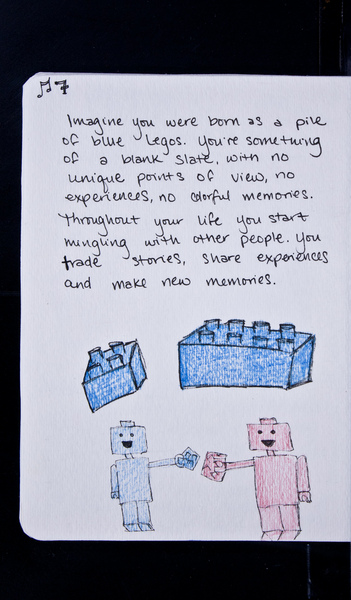 ♫7
Imagine you were born as a pile
of blue Legos. You're something
of a blank slate, with no
unique points of view, no
experiences, no colorful memories.
Throughout your life you start
mingling with other people. You
trade stories, share experiences
and make new memories.